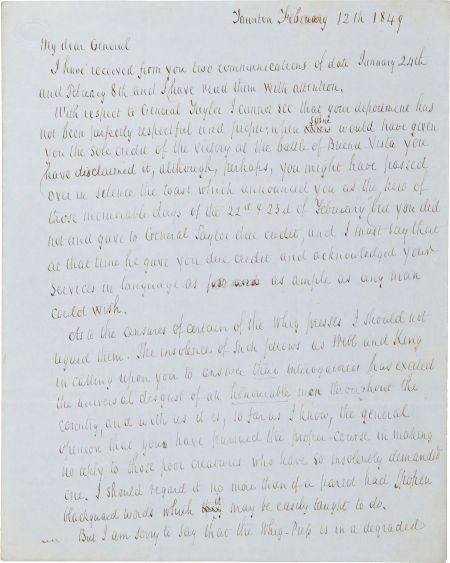 Taunton February 12th 1849
My dear General
I have received from you two communications of date January 24th
and February 8th and I have read them with attention.
With respect to General Taylor I cannot see that your deportment has
not been perfectly respectful and proper; when some would have given
you the sole credit of the victory at the battle of Buena Vista you
have disclaimed it, although, perhaps, you might have passed
over in silence the toast which announced you as the hero of
those memorable days of the 22d & 23d of February, but you did
not and gave to General Taylor due credit, and I must say that
at that time he gave you due credit and acknowledged your
services in language as as ample as any man
could wish.
As to the censures of certain of the Whig presses I should not
regard them. The insolence of such fellows as Webb and King
in calling upon you to answer their interrogatories has excited
the universal disgust of all honourable men throughout the
country, and with us it is, so far as I know, the general
opinion that you have pursued the proper course in making
no reply to those poor creatures who have so insolently demanded
one. I should regard it no more than if a parrot had spoken
blackguard words which it may be easily taught to do.
But I am sorry to say that the Whig Press is in a degraded